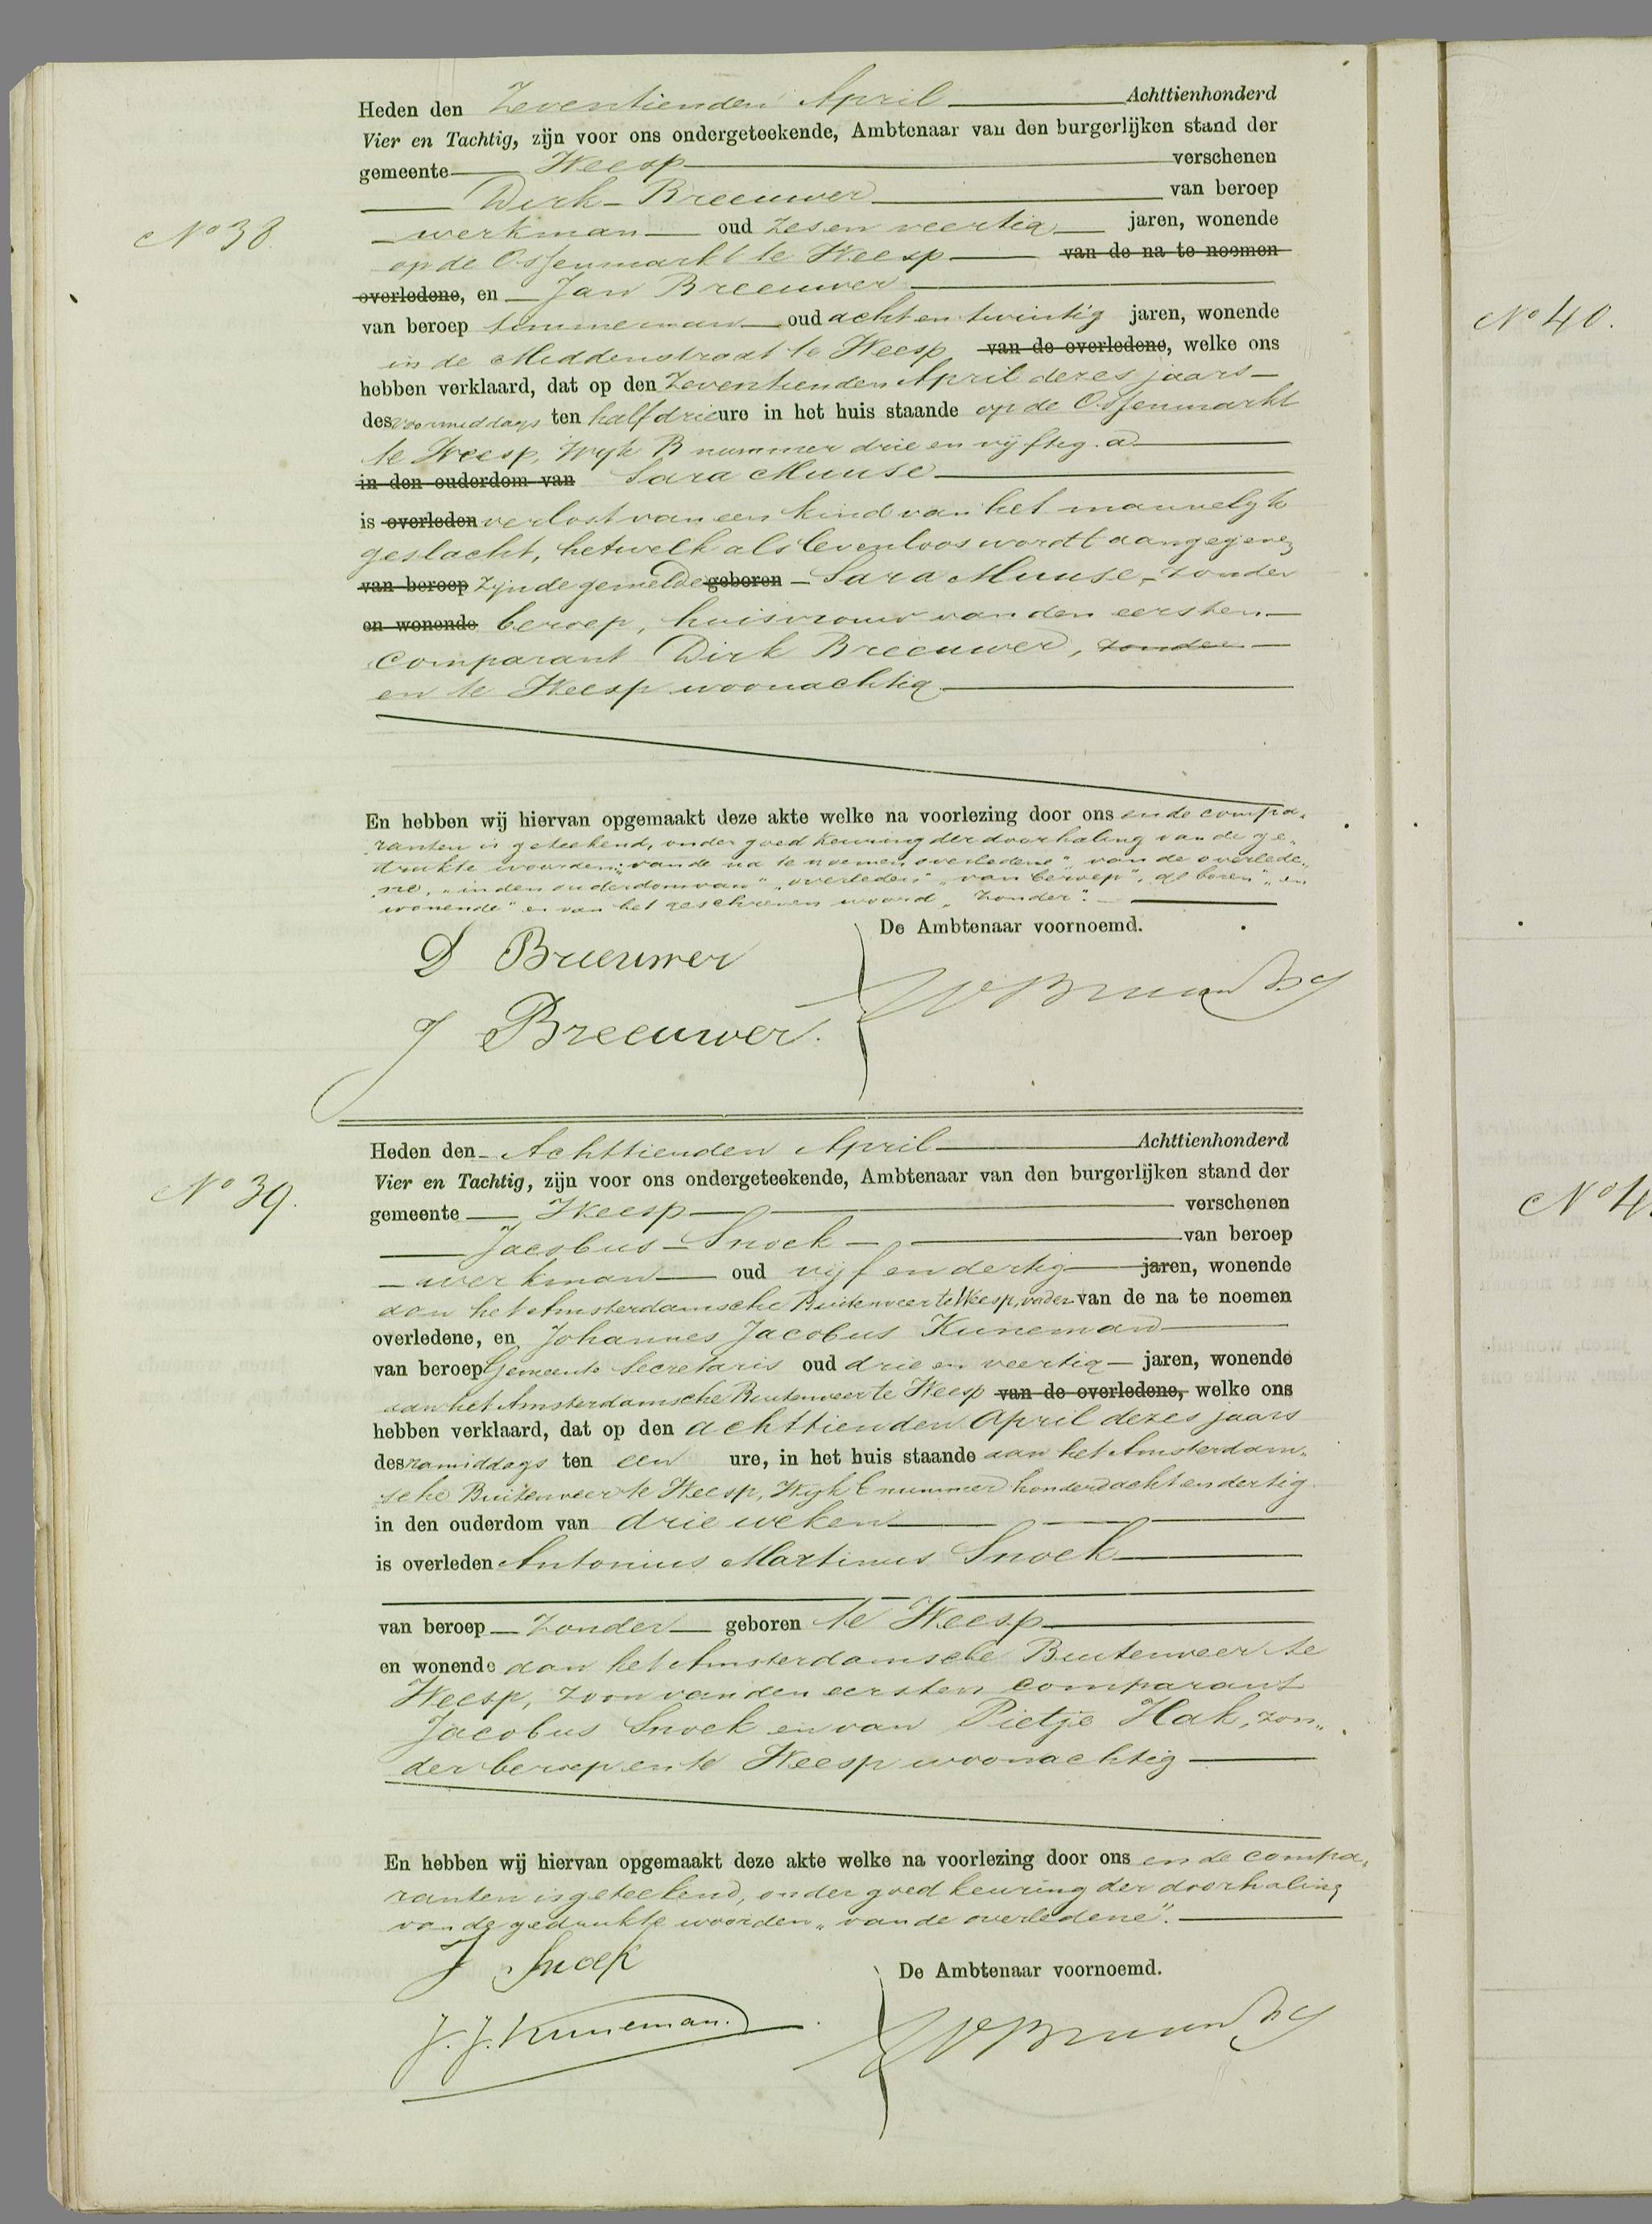 Heden den Zeventienden April Achttienhonderd
Vier en Tachtig, zijn voor ons ondergeteekende, Ambtenaar van den burgerlijken stand der
gemeente Weesp verschenen
Dirk Breeuwer van beroep
No 38. werkman oud zes en veertig jaren, wonende
op de Ossenmarkt te Weesp van de na te noemen
overledene, en Jan Breeuwer
van beroep timmerman oud acht en twintig jaren, wonende
in de Middenstraat te Weesp van de overledene, welke ons
hebben verklaard, dat op den Zeventienden April dezes jaars
des voormiddags ten half drie ure in het huis staande op de Ossenmarkt
te Weesp, Wijk B nummer drie en vijftig a
in den ouderdom van Sara Muuse
is overleden verlost van een kind van het mannelijk
geslacht, hetwelk als levenloos wordt aangegeven
van beroep zijnde gemelde geboren Sara Muuse, zonder
en wonende beroep, huisvrouw van den eersten
comparant Dirk Breeuwer, zonder
en te Weesp woonachtig
En hebben wij hiervan opgemaakt deze akte welke na voorlezing door ons en de compa„
ranten is geteekend, onder goedkeuring der doorhaling van de ge„
drukte woorden: „van de na te noemen overledene", van de overlede„
ne, „in den ouderdom van" „overleden" „van beroep", geboren" „en
wonende" en van het geschreven woord „zonder".
De Ambtenaar voornoemd.
D Breeuwer
J Breeuwer.
Heden den Achttienden April Achttienhonderd
No 39. Vier en Tachtig, zijn voor ons ondergeteekende, Ambtenaar van den burgerlijken stand der
gemeente Weesp verschenen
Jacobus Snoek van beroep
werkman oud vijf en dertig jaren, wonende
aan het Amsterdamsche Buitenveer te Weesp, vader van de na te noemen
overledene, en Johannes Jacobus Kuneman
van beroep Gemeente Secretaris oud drie en veertig jaren, wonende
aan het Amsterdamsche Buitenveer te Weesp van de overledene, welke ons
hebben verklaard, dat op den achttienden April dezes jaars
des namiddags ten een ure, in het huis staande aan het Amsterdam„
sche Buitenveer te Weesp, Wijk E nummer honderd acht en dertig
in den ouderdom van drie weken
is overleden Antonius Martinus Snoek
van beroep zonder geboren te Weesp
en wonende aan het Amsterdamsche Buitenveer te
Weesp, zoon van den eersten comparant
Jacobus Snoek en van Pietje Hak, zon„
der beroep en te Weesp woonachtig
En hebben wij hiervan opgemaakt deze akte welke na voorlezing door ons en de compa„
ranten is geteekend, onder goedkeuring der doorhaling
van de gedrukte woorden „van de overledene".
De Ambtenaar voornoemd.
J Snoek
J. J. Kuneman.
No 40.
No 4